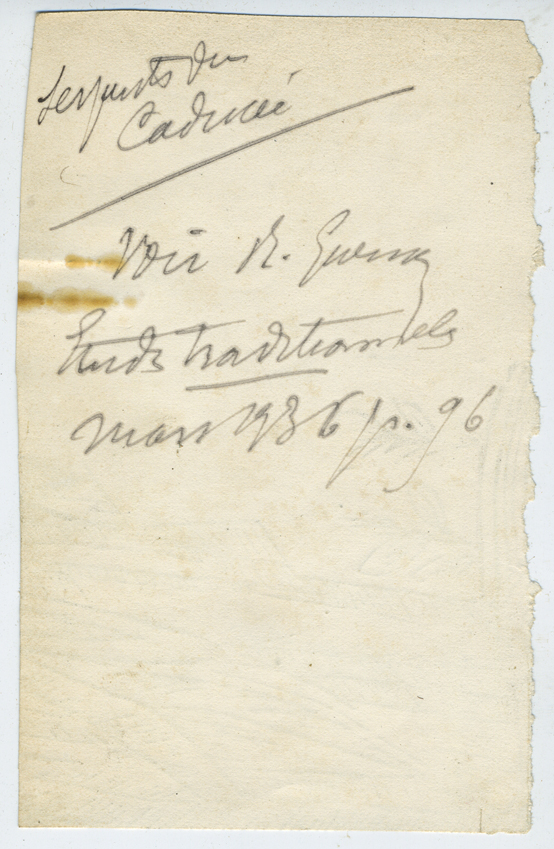 Serpents du
Caducée
Voir R. Guénon
Etudes traditionnels
mars 1936 p. 96